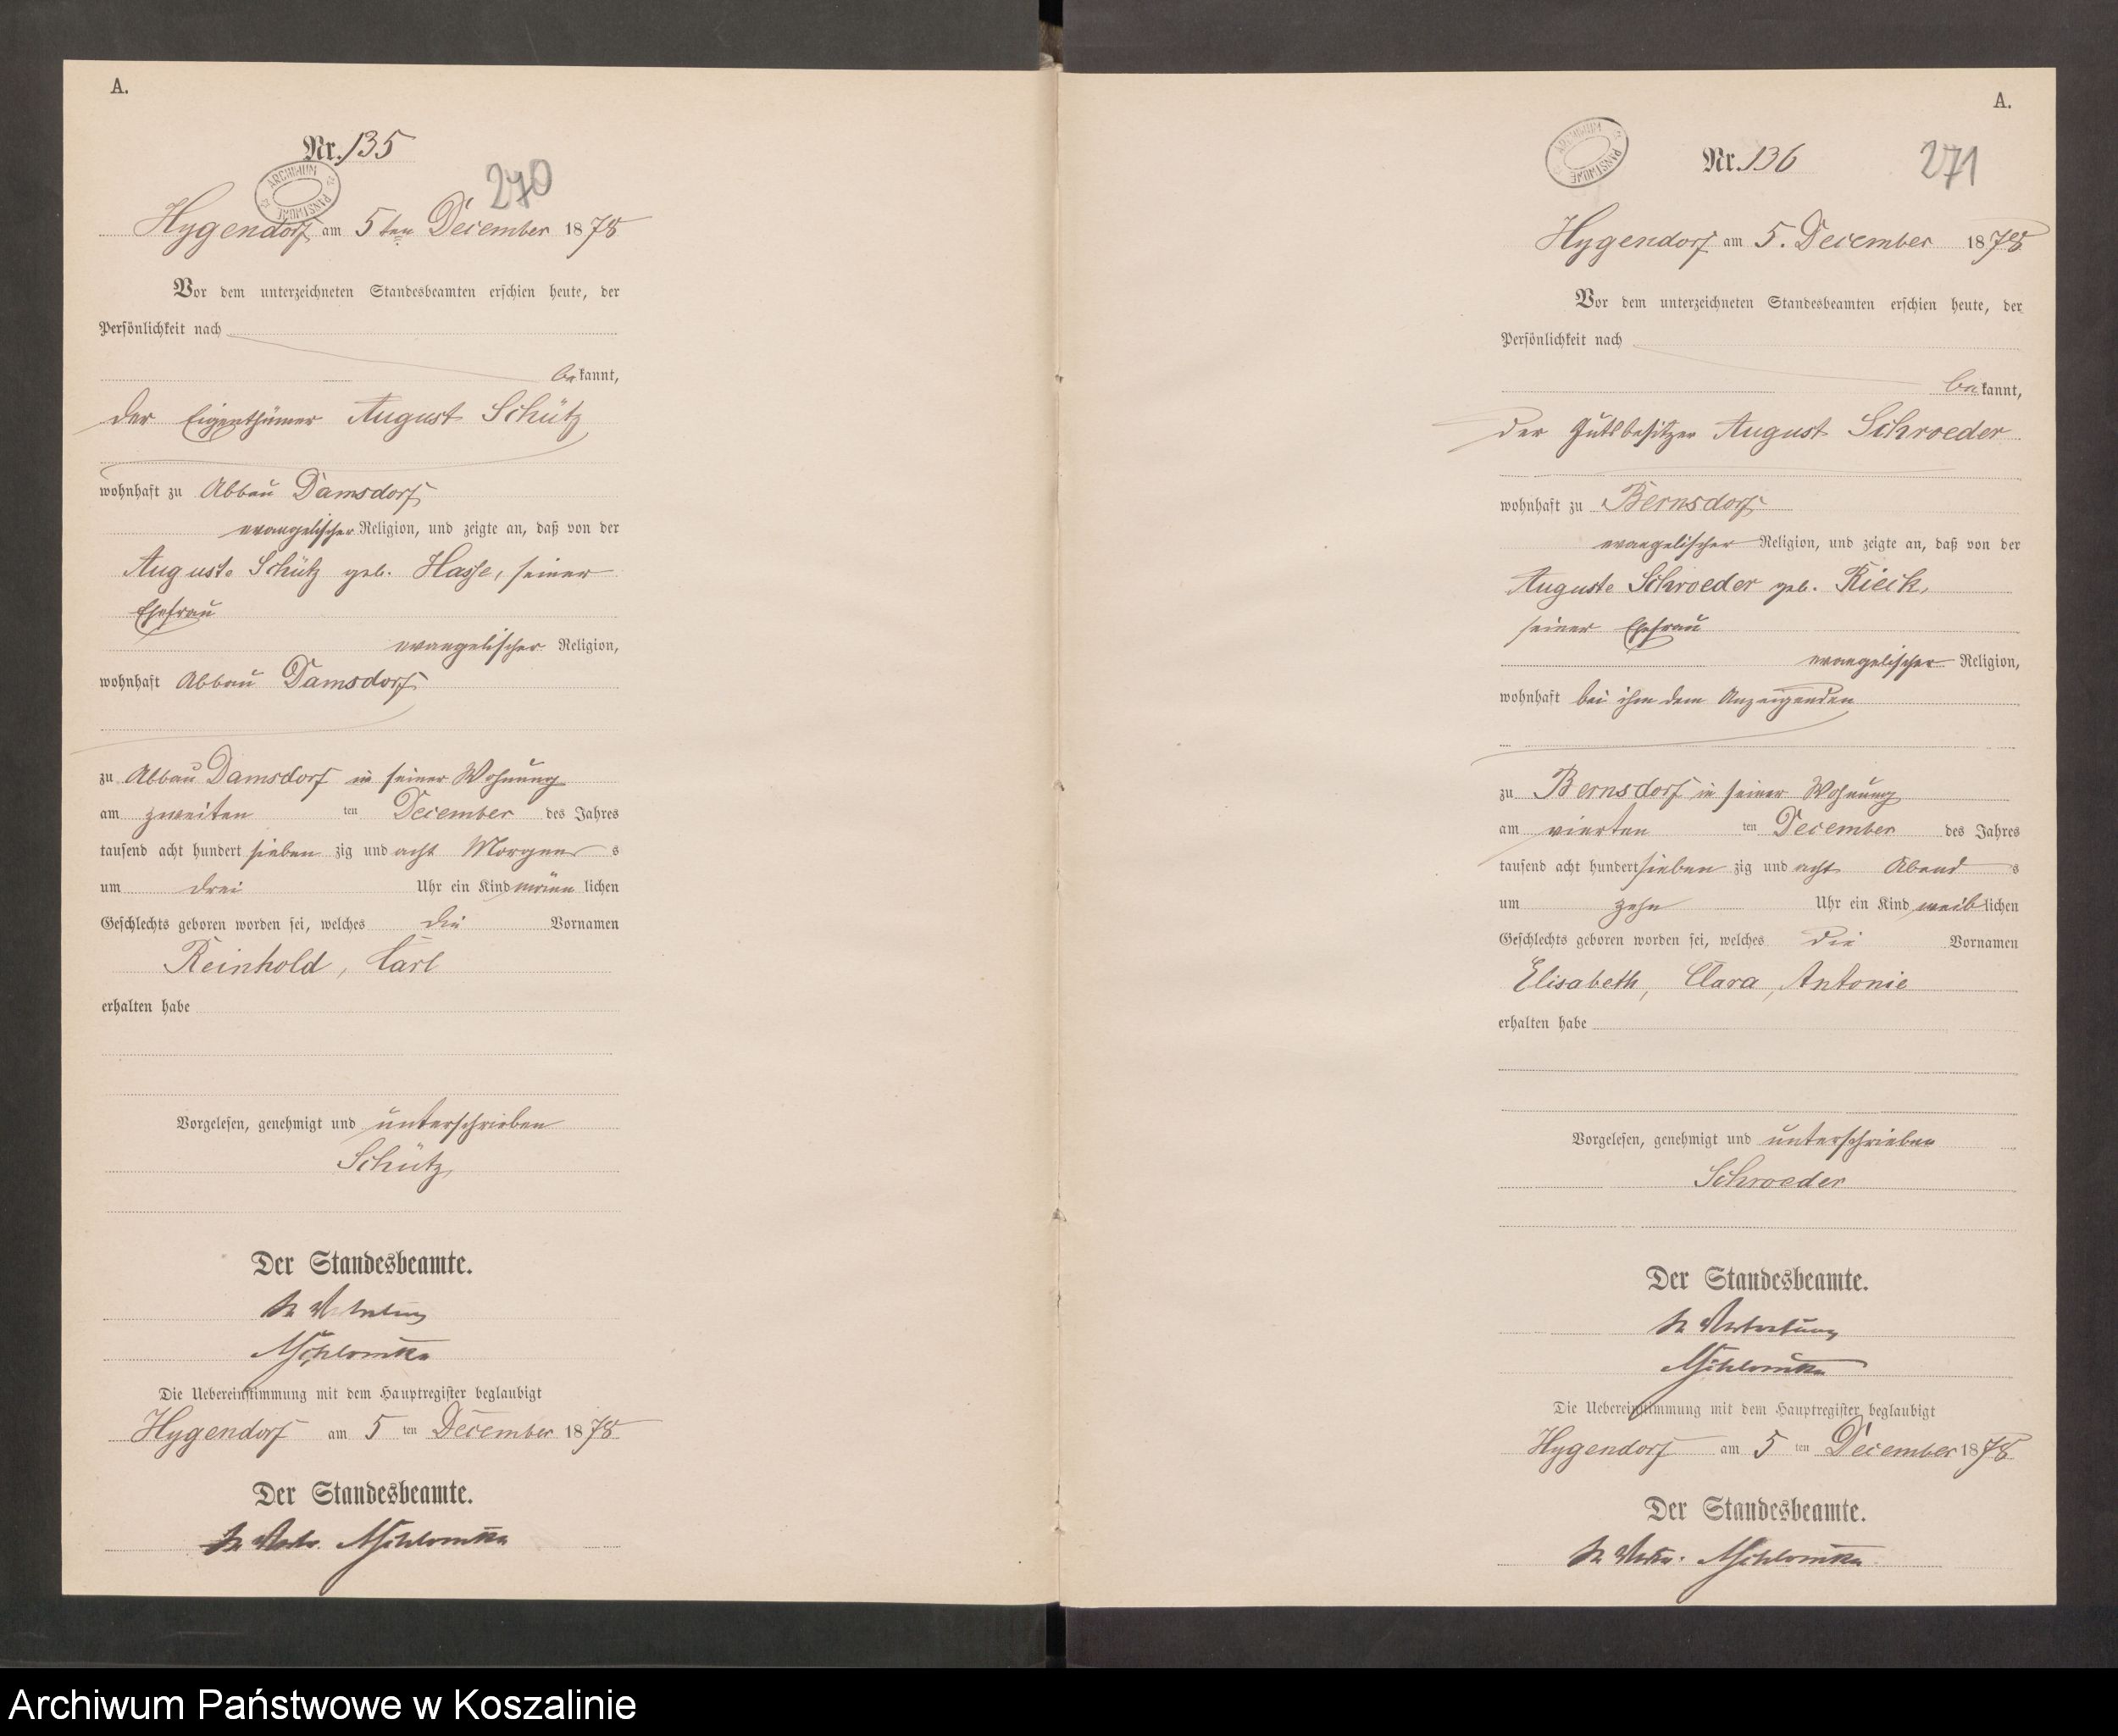 A.
Nr. 135
ARCHIWUM PAŃSTWOWE
270
Hygendorf am 5ten December 1878
Vor dem unterzeichneten Standesbeamten erschien heute, der
Persönlichkeit nach
bekannt,
der Eigenthümer August Schütz
wohnhaft zu Abbau Damsdorf
evangelischer Religion, und zeigte an, daß von der
Auguste Schütz geb. Hasse, seiner
Ehefrau
evangelischer Religion,
wohnhaft Abbau Damsdorf
zu Abbau Damsdorf in seiner Wohnung
am zweiten ten December des Jahres
tausend acht hundert sieben zig und acht Morgens
um drei Uhr ein Kind männlichen
Geschlechts geboren worden sei, welches die Vornamen
Reinhold, Carl
erhalten habe
Vorgelesen, genehmigt und unterschrieben
Schütz
Der Standesbeamte.
In Vertretung
Die Uebereinstimmung mit dem Hauptregister beglaubigt
Hygendorf am 5 ten December 1878
Der Standesbeamte.
In Vertr.
A.
ARCHIWUM PAŃSTWOWE
Nr. 136
271
Hygendorf am 5. December 1878
Vor dem unterzeichneten Standesbeamten erschien heute, der
Persönlichkeit nach
bekannt,
der Gutsbesitzer August Schroeder
wohnhaft zu Bernsdorf
evangelischer Religion, und zeigte an, daß von der
Auguste Schroeder geb. Rieck,
seiner Ehefrau
evangelischer Religion,
wohnhaft bei ihm dem Anzeigenden
zu Bernsdorf in seiner Wohnung
am vierten ten December des Jahres
tausend acht hundert sieben zig und acht Abends
um zehn Uhr ein Kind weiblichen
Geschlechts geboren worden sei, welches die Vornamen
Elisabeth, Clara, Antonie
erhalten habe
Vorgelesen, genehmigt und unterschrieben
Schroeder
Der Standesbeamte.
In Vertretung
Die Uebereinstimmung mit dem Hauptregister beglaubigt
Hygendorf am 5 ten December 1878
Der Standesbeamte.
In Vertr.
Archiwum Państwowe w Koszalinie